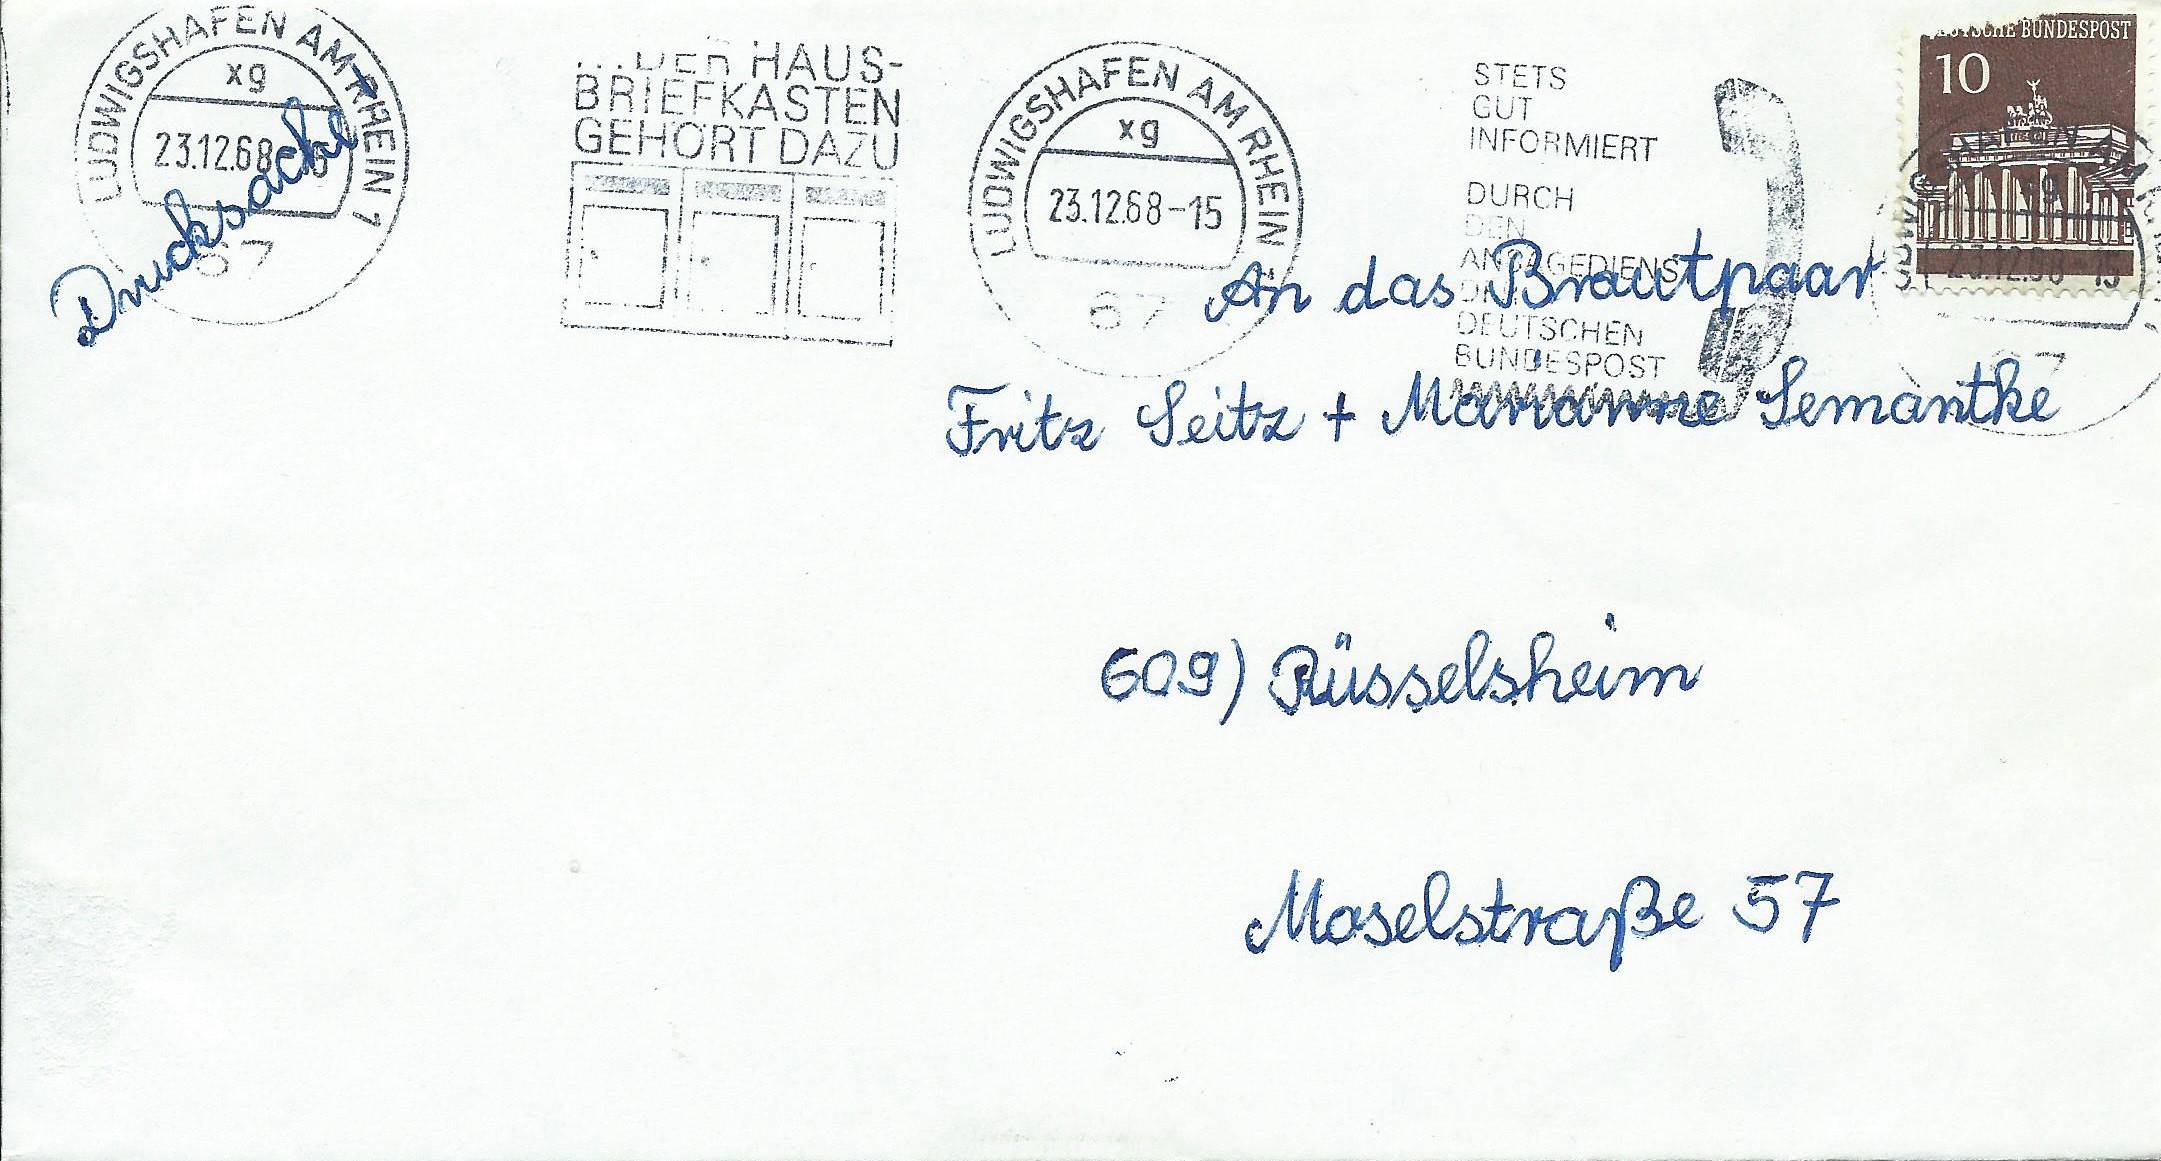 LUDWIGSHAFEN AM RHEIN 1
xg
23.12.68
67
Drucksache
...DER HAUS-
BRIEFKASTEN
GEHÖRT DAZU
LUDWIGSHAFEN AM RHEIN
xg
23.12.68-15
67
STETS
GUT
INFORMIERT
DURCH
DEN
ANSAGEDIENST
DEUTSCHEN
BUNDESPOST
DEUTSCHE BUNDESPOST
10
xg
23.12.68-15
67
An das Brautpaar
Fritz Seitz + Marianne Semantke
609) Rüsselsheim
Moselstraße 57